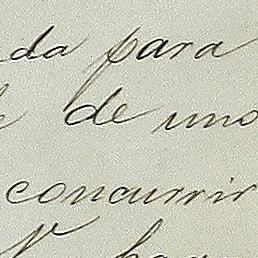 da para
de uno
concurrir